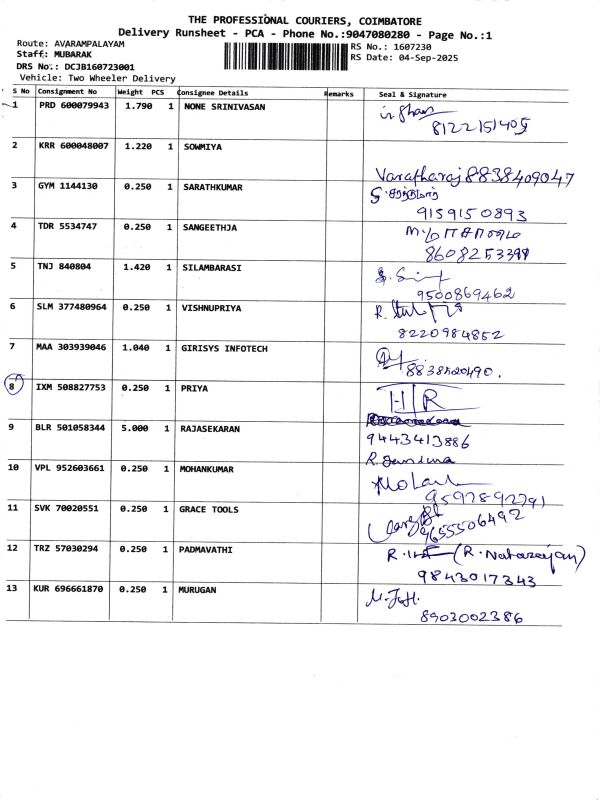 THE PROFESSIONAL COURIERS, COIMBATORE
Delivery Runsheet - PCA - Phone No.:9047080280 - Page No.:1
Route: AVARAMPALAYAM
RS No.: 1607230
Staff: MUBARAK
RS Date: 04-Sep-2025
DRS No.: DCJB160723001
Vehicle: Two Wheeler Delivery
S No Consignment No Weight PCS Consignee Details Remarks Seal & Signature
1 PRD 600079943 1.790 1 NONE SRINIVASAN
8122151405
2 KRR 600048007 1.220 1 SOWMIYA
Varatharaj 8838409047
3 GYM 1144130 0.250 1 SARATHKUMAR
9159150893
4 TDR 5534747 0.250 1 SANGEETHJA
8608253399
5 TNJ 840804 1.420 1 SILAMBARASI
9500869462
6 SLM 377480964 0.250 1 VISHNUPRIYA
8220984852
7 MAA 303939046 1.040 1 GIRISYS INFOTECH
8838520490.
8 IXM 508827753 0.250 1 PRIYA
9 BLR 501058344 5.000 1 RAJASEKARAN
9443413886
10 VPL 952603661 0.250 1 MOHANKUMAR
9597892791
11 SVK 70020551 0.250 1 GRACE TOOLS
9655506492
12 TRZ 57030294 0.250 1 PADMAVATHI
(R. Natarajan)
9843017343
13 KUR 696661870 0.250 1 MURUGAN
8903002386